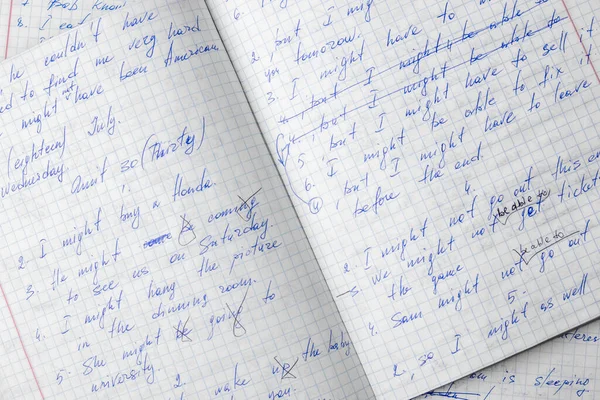 7. Bob know
8. I
he couldn't have
to find me very hard
might not have been American
(eighteen) July.
Wednesday.
Unit 30 (Thirty)
2. I might buy a Honda.
3. He might be coming
to see us on Saturday
4. I might hang the picture
in the dinning room.
5. She might be going to
university.
2.
wake up the baby
6. I mig
2, but I might have to
tomorrow.
3. I might have to
but I might be able to
, but I might be able to
4, but I might have to sell it
5. I might be able to fix it
6. , but I might have to leave
before the end.
4.
2. I might not go out this
be able to
3. We might not get tickets
the game
be able to
4. Sam might not go out
5.
2, so I might as well
is sleeping